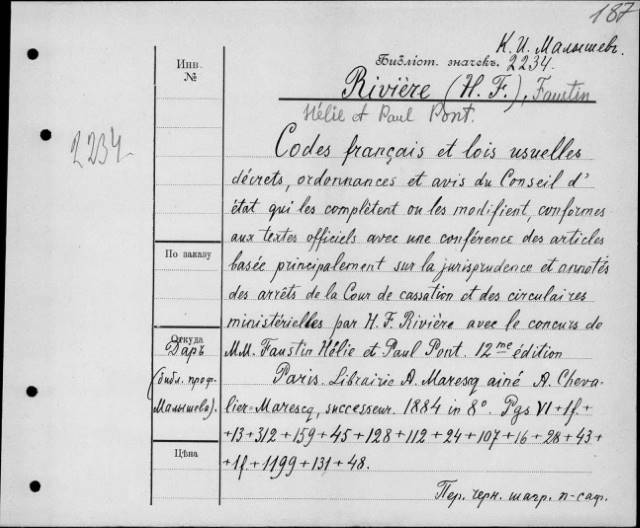 187
К. И. Малышевъ.
Библіот. значекъ. 2234.
Инв. №
Rivière (H. F.), Faustin
Hélie et Paul Pont.
2234
Codes français et lois usuelles
décrets, ordonnances et avis du Conseil d'
état qui les complètent ou les modifient, conformes
aux textes officiels avec une conférence des articles
По заказу
basée principalement sur la jurisprudence et annotés
des arrêts de la Cour de cassation et des circulaires
ministérielles par H. F. Rivière avec le concurs de
Откуда
Даръ
(библ. проф.
Малышева).
MM. Faustin Hélie et Paul Pont. 12me édition
Paris. Librairie A. Maresq ainé A. Cheva-
lier-Marescq, successeur. 1884 in 8°. Pgs VI + 1f. +
+13+312+159+45+128+112+24+107+16+28+43+
Цѣна
+1f+1199+131+48.
Пер. черн. шагр. п-саф.